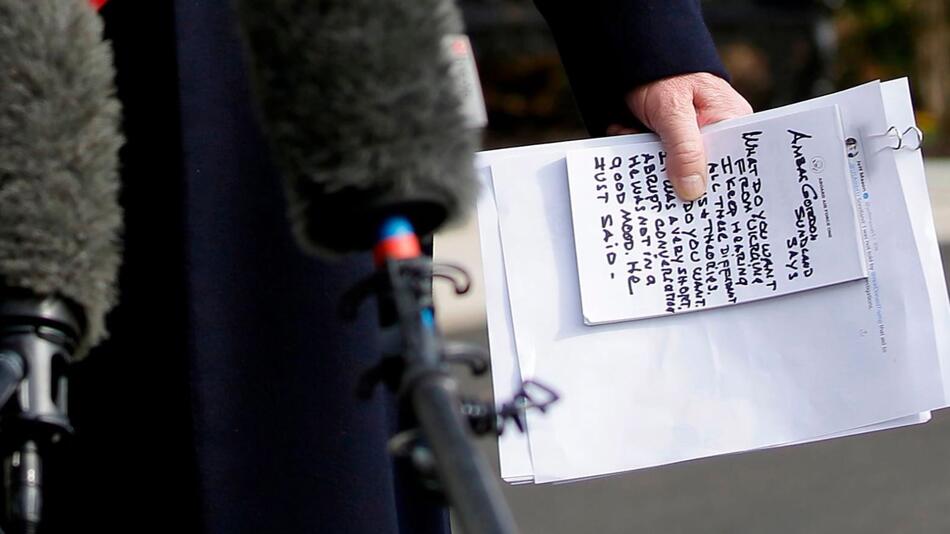 Jeff Mason
ABOARD AIR FORCE ONE
AMBAS GORDON
SUNDLAND
SAYS
WHAT DO YOU WANT
FROM UKRAINE
I KEEP HEARING
ALL THESE DIFFERENT
S & THEORIES.
DO YOU WANT.
IT WAS A VERY SHORT,
ABRUPT CONVERSATION
HE WAS NOT IN A
GOOD MOOD. HE
JUST SAID -